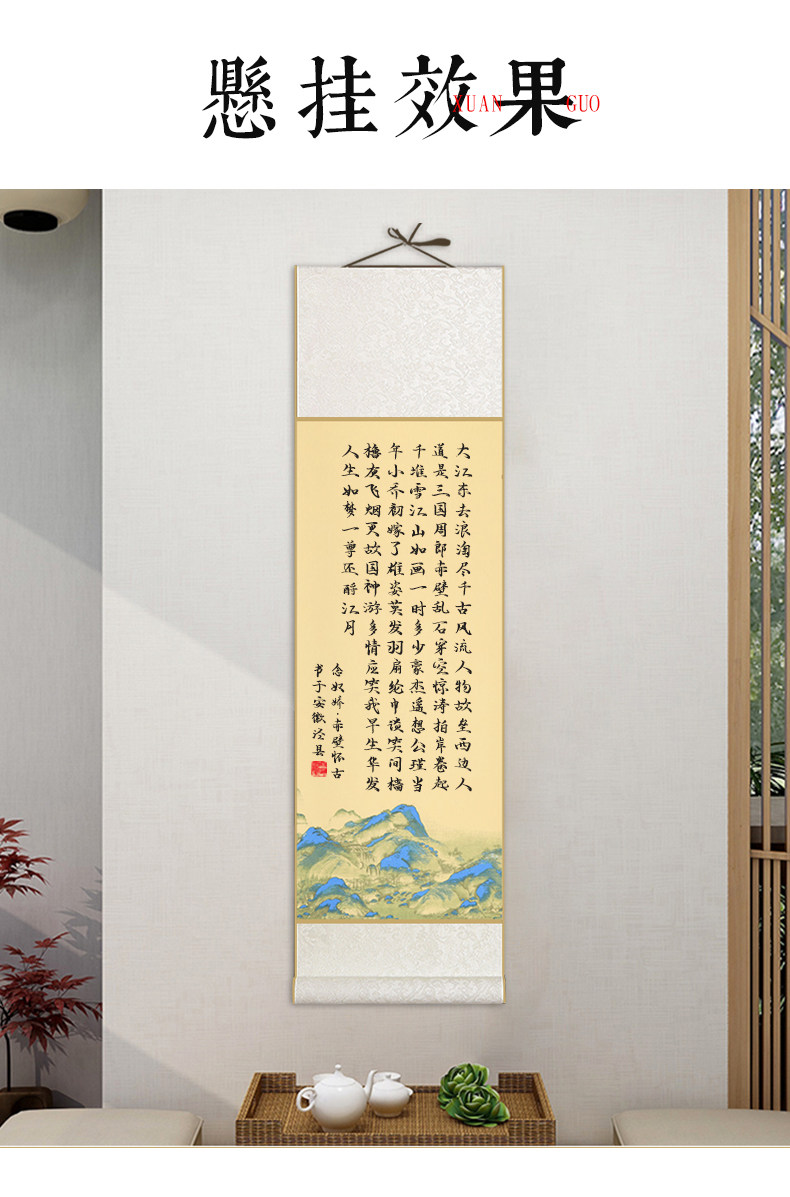 懸挂效果
XUAN GUO
大江东去浪淘尽千古风流人物故垒西边人
道是三国周郎赤壁乱石穿空惊涛拍岸卷起
千堆雪江山如画一时多少豪杰遥想公瑾当
年小乔初嫁了雄姿英发羽扇纶巾谈笑间樯
橹灰飞烟灭故国神游多情应笑我早生华发
人生如梦一尊还酹江月
念奴娇·赤壁怀古
书于安徽泾县